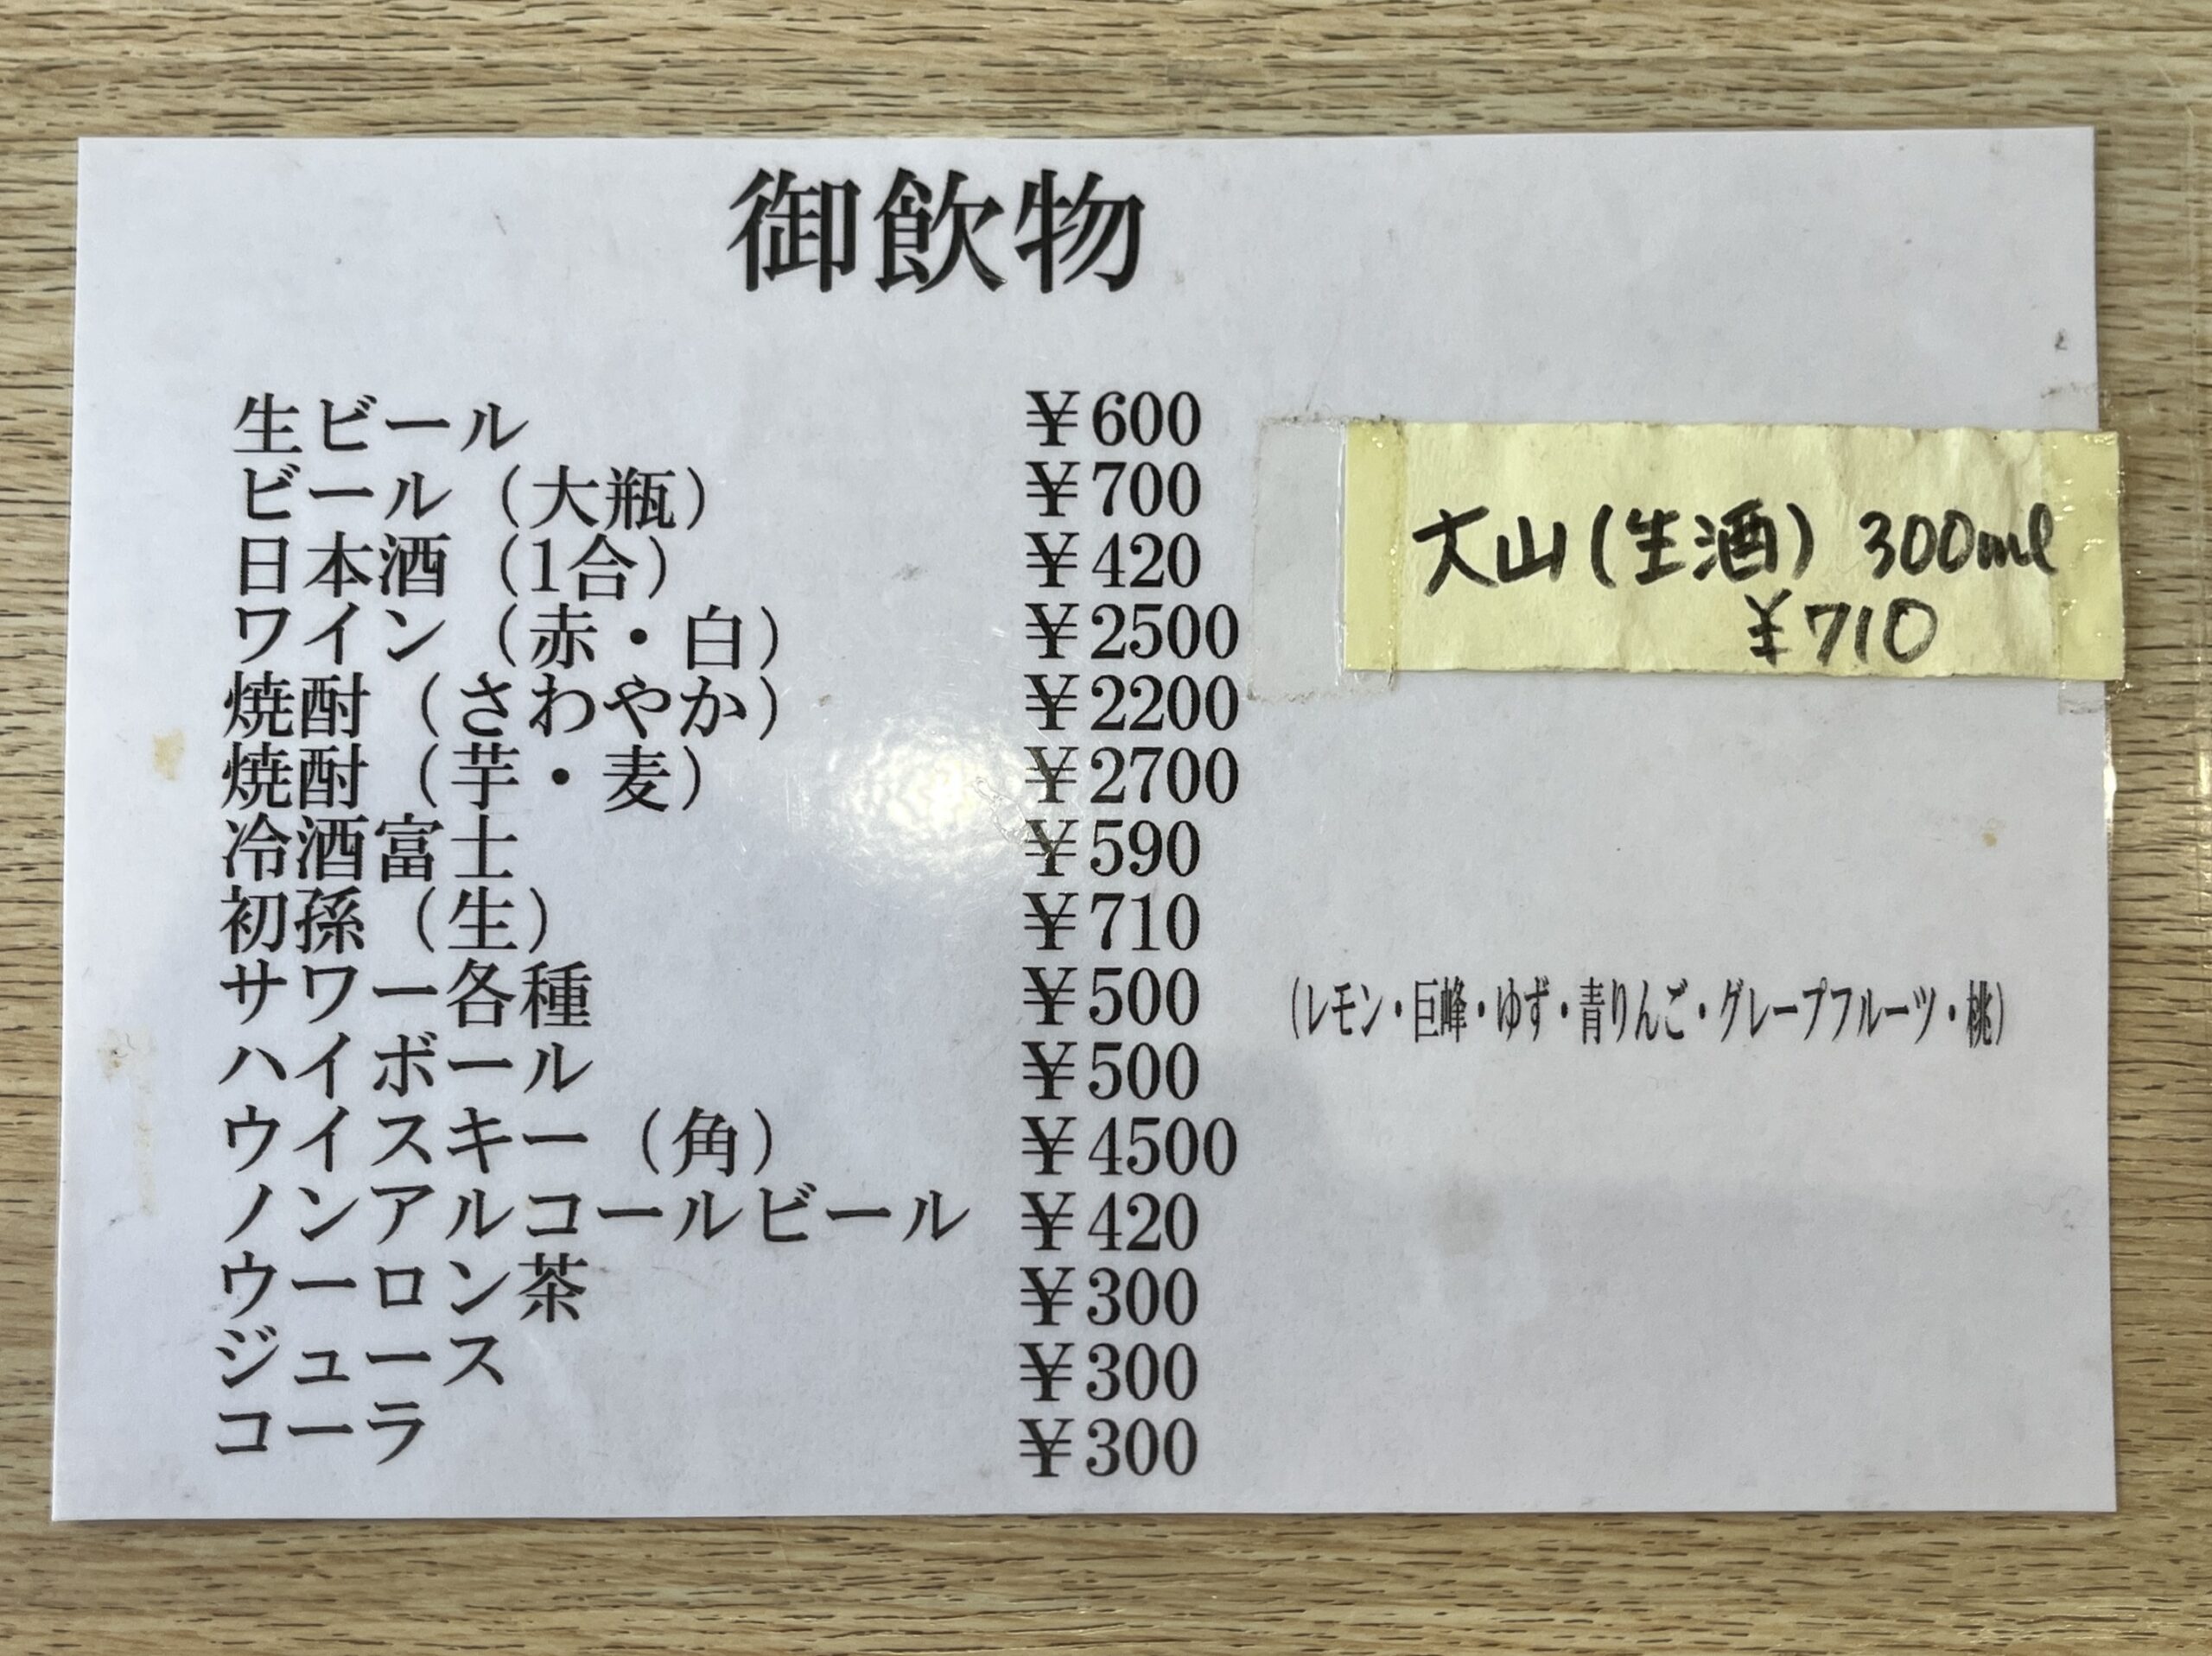 御飲物
生ビール ￥600
ビール（大瓶） ￥700
日本酒（1合） ￥420
ワイン（赤・白） ￥2500
焼酎（さわやか） ￥2200
焼酎（芋・麦） ￥2700
冷酒富士 ￥590
初孫（生） ￥710
サワー各種 ￥500 （レモン・巨峰・ゆず・青りんご・グレープフルーツ・桃）
ハイボール ￥500
ウイスキー（角） ￥4500
ノンアルコールビール ￥420
ウーロン茶 ￥300
ジュース ￥300
コーラ ￥300
大山（生酒）300ml
￥710